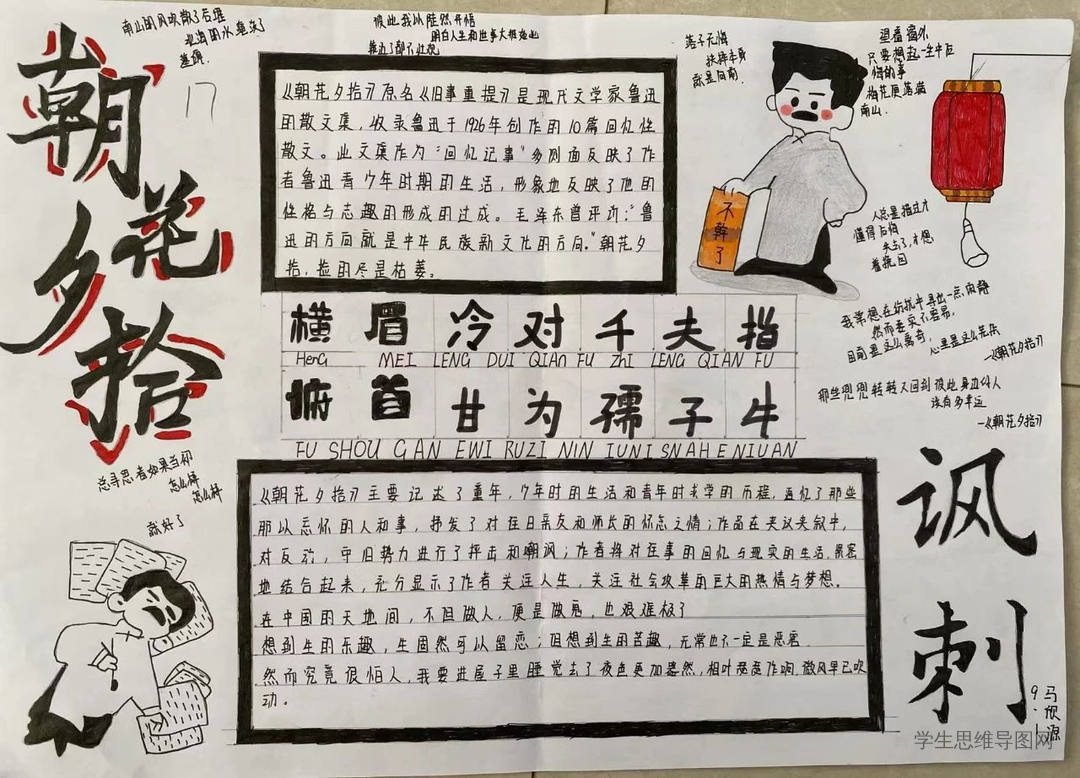 朝花夕拾
南山的风吹散了谷堆
北海的水淹没了
墓碑
彼此我以陡然开悟
明白人生和世事大抵如此
靠近了都不壮观
落子无悔
扶摔半身
就是向南
望着窗外
只要想起一生中后
悔的事
梅花便落满
南山
17
《朝花夕拾》原名《旧事重提》是现代文学家鲁迅
的散文集，收录鲁迅于1926年创作的10篇回忆性
散文。此文集作为“回忆记事”多侧面反映了作
者鲁迅青少年时期的生活，形象地反映了他的
性格与志趣的形成的过成。毛泽东曾评价：“鲁
迅的方向就是中华民族新文化的方向。”朝花夕
拾，捡的尽是枯萎。
不干了
人总是错过才
懂得后悔
失去了，才想
着挽回
横眉冷对千夫指
HENG MEI LENG DUI QIAN FU ZHI LENG QIAN FU
俯首甘为孺子牛
FU SHOU GAN EWI RUZI NIN IUNISNAHENIUAN
我常想在纷扰中寻出一点闲静
然而委实不容易，
目前是这么离奇，心里是这么芜杂
—《朝花夕拾》
那些兜兜转转又回到彼此身边的人
该有多幸运
—《朝花夕拾》
总寻思着如果当初
怎么样
怎么样
就好了
《朝花夕拾》主要记述了童年，少年时的生活和青年时求学的历程，追忆了那些
那以忘怀的人和事，抒发了对往日亲友和师长的怀念之情；作品在夹议夹叙中，
对反动，守旧势力进行了抨击和嘲讽；作者将对往事的回忆与现实的生活，紧密
地结合起来，充分显示了作者关注人生，关注社会改革的巨大的热情与梦想。
在中国的天地间，不但做人，便是做鬼，也艰难极了
想到生的乐趣，生固然可以留恋；但想到生的苦趣，无常也不一定是恶客
然而究竟很怕人，我要进屋子里睡觉去了夜色更加黯然，相叶瑟瑟作响，微风早已吹
动。
讽刺
9.1
马欣源
学生思维导图网